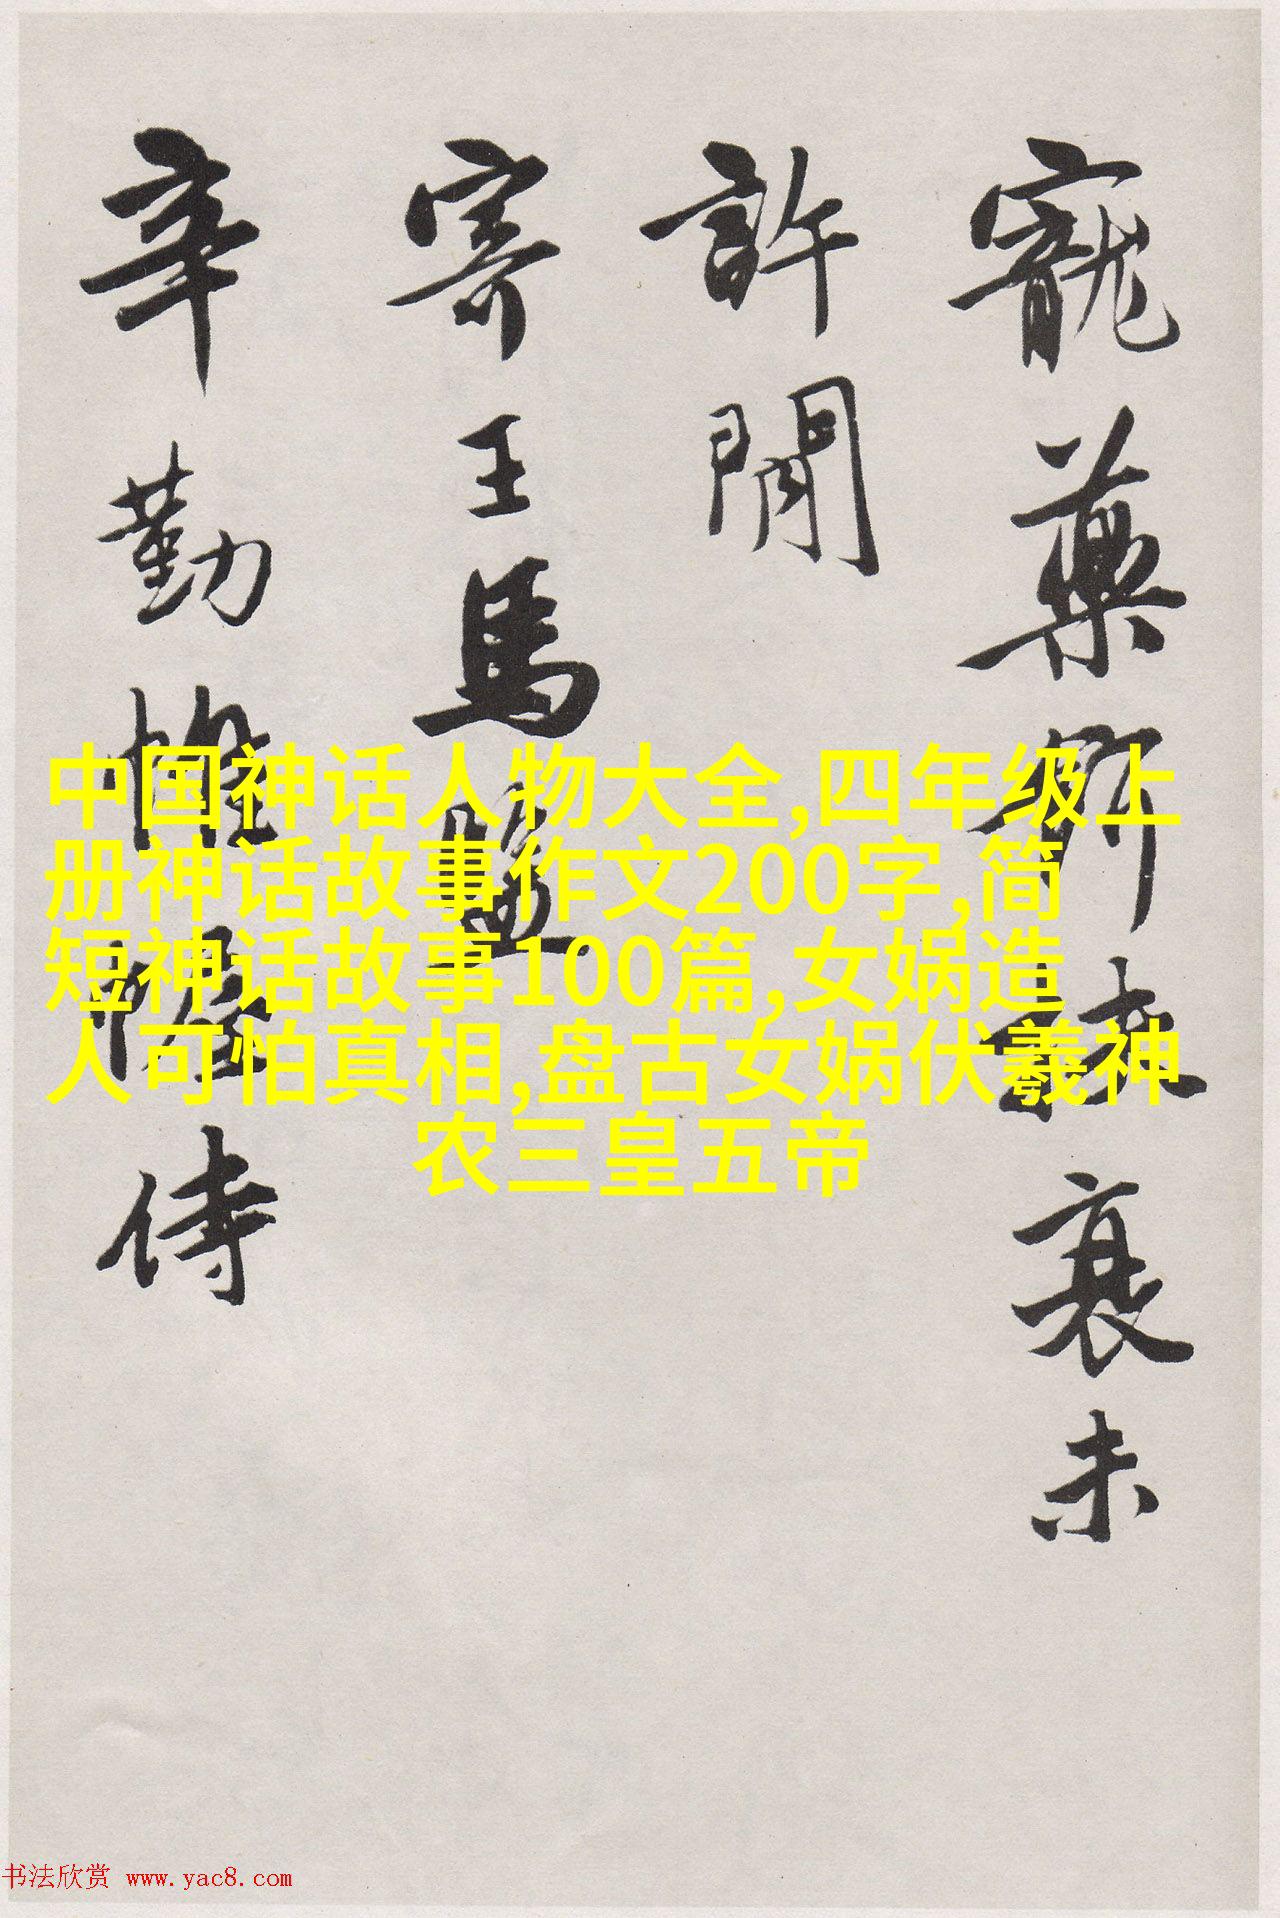 寵藥所衰未
許閒
寄王馬監
辛勤帷幄侍
中国神话人物大全,四年级上
册神话故事作文200字,简
短神话故事100篇,女娲造
人可怕真相,盘古女娲伏羲神
农三皇五帝
书法欣赏 www.yac8.com